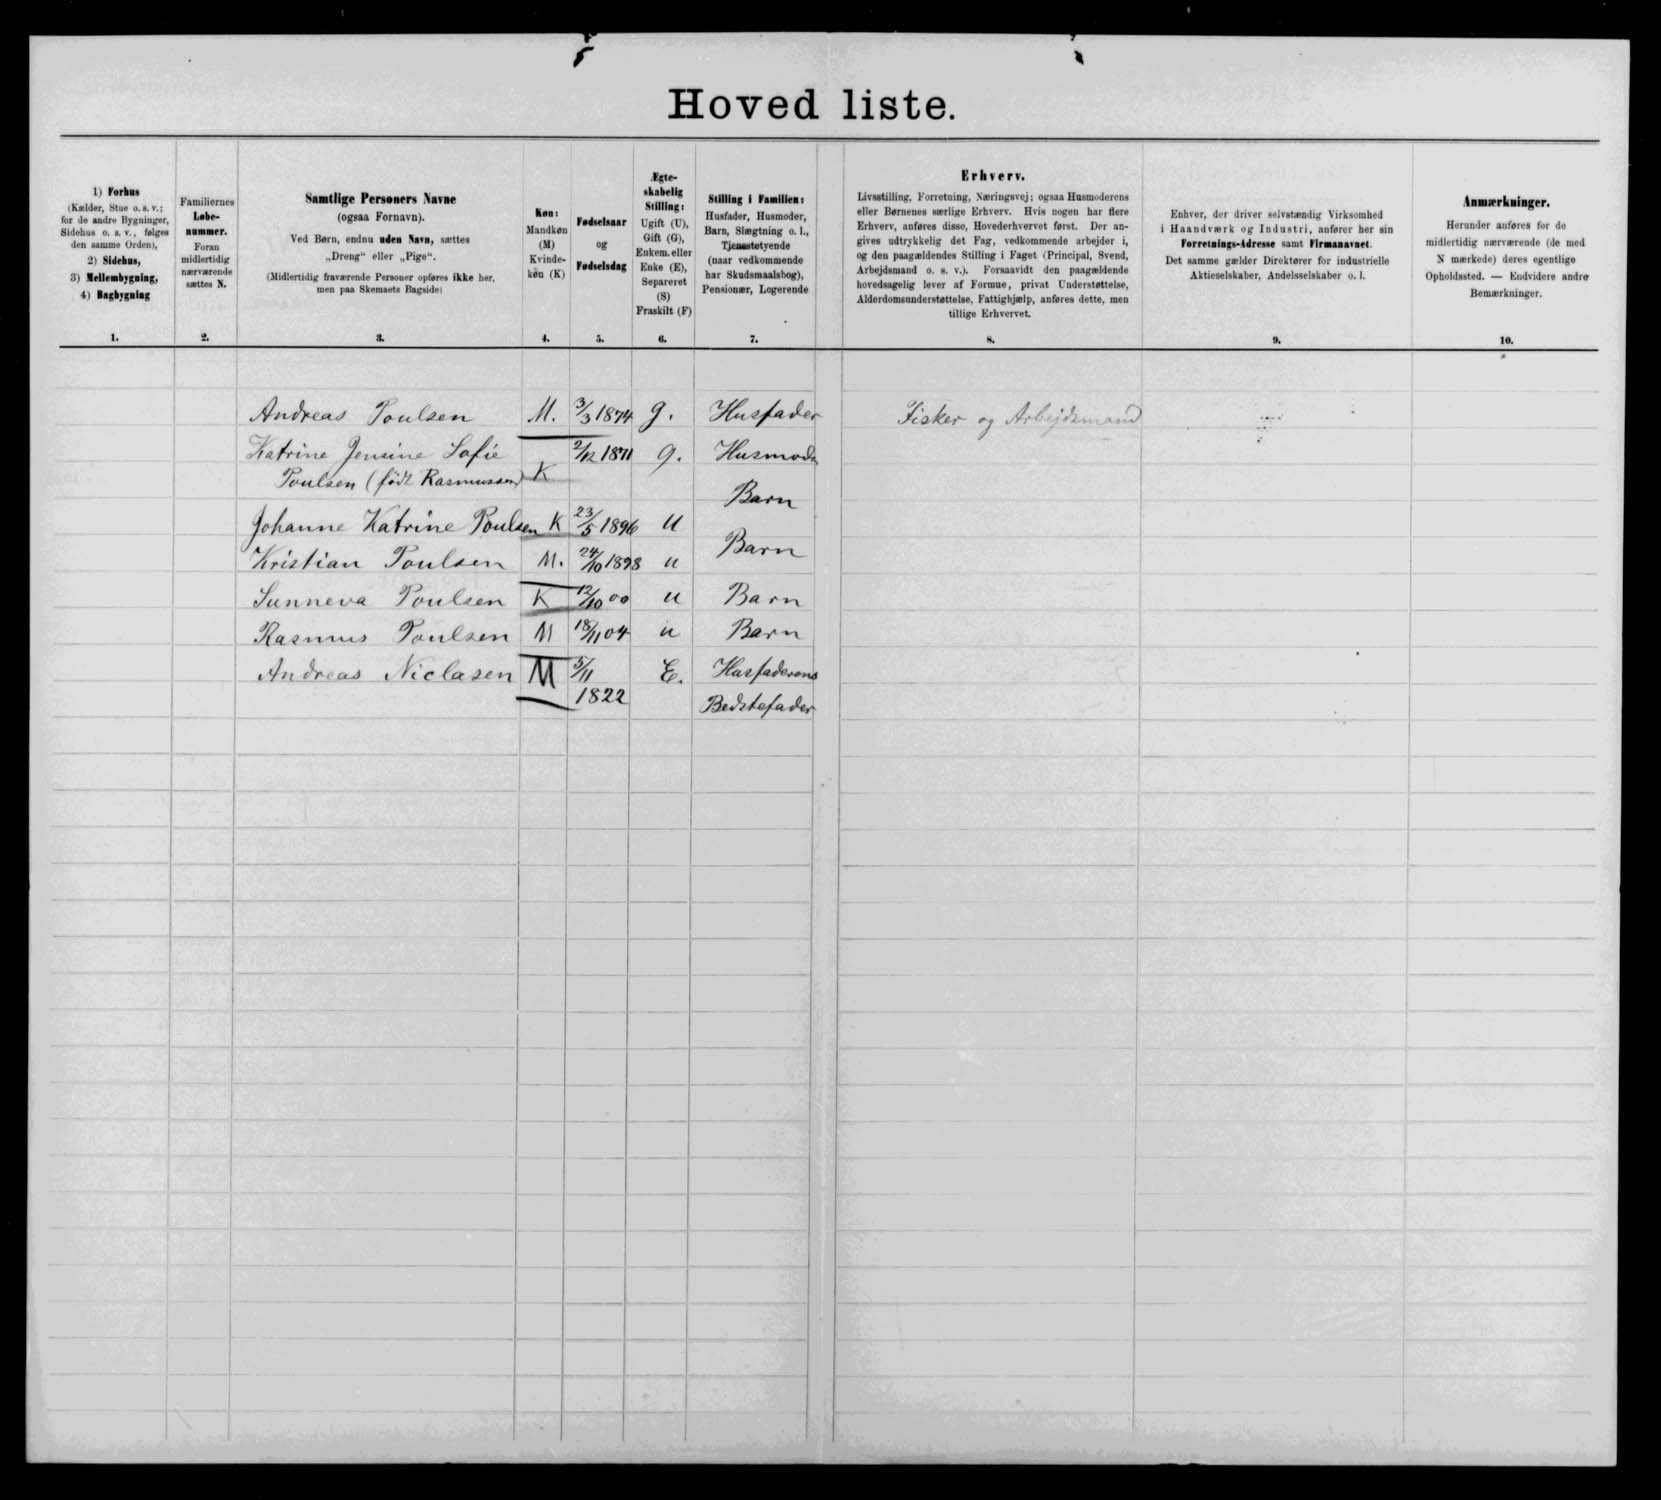 Hoved liste.
1) Forhus
(Kælder, Stue o. s. v.;
for de andre Bygninger,
Sidehus o. s. v., følges
den samme Orden),
2) Sidehus,
3) Mellembygning,
4) Bagbygning
1.
Familiernes
Løbe-
nummer.
Foran
midlertidig
nærværende
sættes N.
2.
Samtlige Personers Navne
(ogsaa Fornavn).
Ved Børn, endnu uden Navn, sættes
„Dreng“ eller „Pige“.
(Midlertidig fraværende Personer opføres ikke her,
men paa Skemaets Bagside)
3.
Køn:
Mandkøn
(M)
Kvinde-
køn (K)
4.
Fødselsaar
og
Fødselsdag
5.
Ægte-
skabelig
Stilling:
Ugift (U),
Gift (G),
Enkem. eller
Enke (E),
Separeret
(S)
Fraskilt (F)
6.
Stilling i Familien:
Husfader, Husmoder,
Barn, Slægtning o. l.,
Tjenestetyende
(naar vedkommende
har Skudsmaalsbog),
Pensionær, Logerende
7.
Erhverv.
Livsstilling, Forretning, Næringsvej; ogsaa Husmoderens
eller Børnenes særlige Erhverv. Hvis nogen har flere
Erhverv, anføres disse, Hovederhvervet først. Der an-
gives udtrykkelig det Fag, vedkommende arbejder i,
og den paagældendes Stilling i Faget (Principal, Svend,
Arbejdsmand o. s. v.). Forsaavidt den paagældende
hovedsagelig lever af Formue, privat Understøttelse,
Alderdomsunderstøttelse, Fattighjælp, anføres dette, men
tillige Erhvervet.
8.
Enhver, der driver selvstændig Virksomhed
i Haandværk og Industri, anfører her sin
Forretnings-Adresse samt Firmanavnet.
Det samme gælder Direktører for industrielle
Aktieselskaber, Andelsselskaber o. l.
9.
Anmærkninger.
Herunder anføres for de
midlertidig nærværende (de med
N mærkede) deres egentlige
Opholdssted. — Endvidere andre
Bemærkninger.
10.
Andreas Poulsen M. 3/3 1874 g. Husfader Fisker og Arbejdsmand
Katrine Jensine Sofie 2/12 1871 g. Husmoder
Poulsen (født Rasmussen) K
Johanne Katrine Poulsen K 23/5 1896 U Barn
Kristian Poulsen M. 24/10 1898 u Barn
Sunneva Poulsen K 12/10 00 u Barn
Rasmus Poulsen M 18/11 04 u Barn
Andreas Niclasen M 5/11 E. Husfaderens
1822 Bedstefader